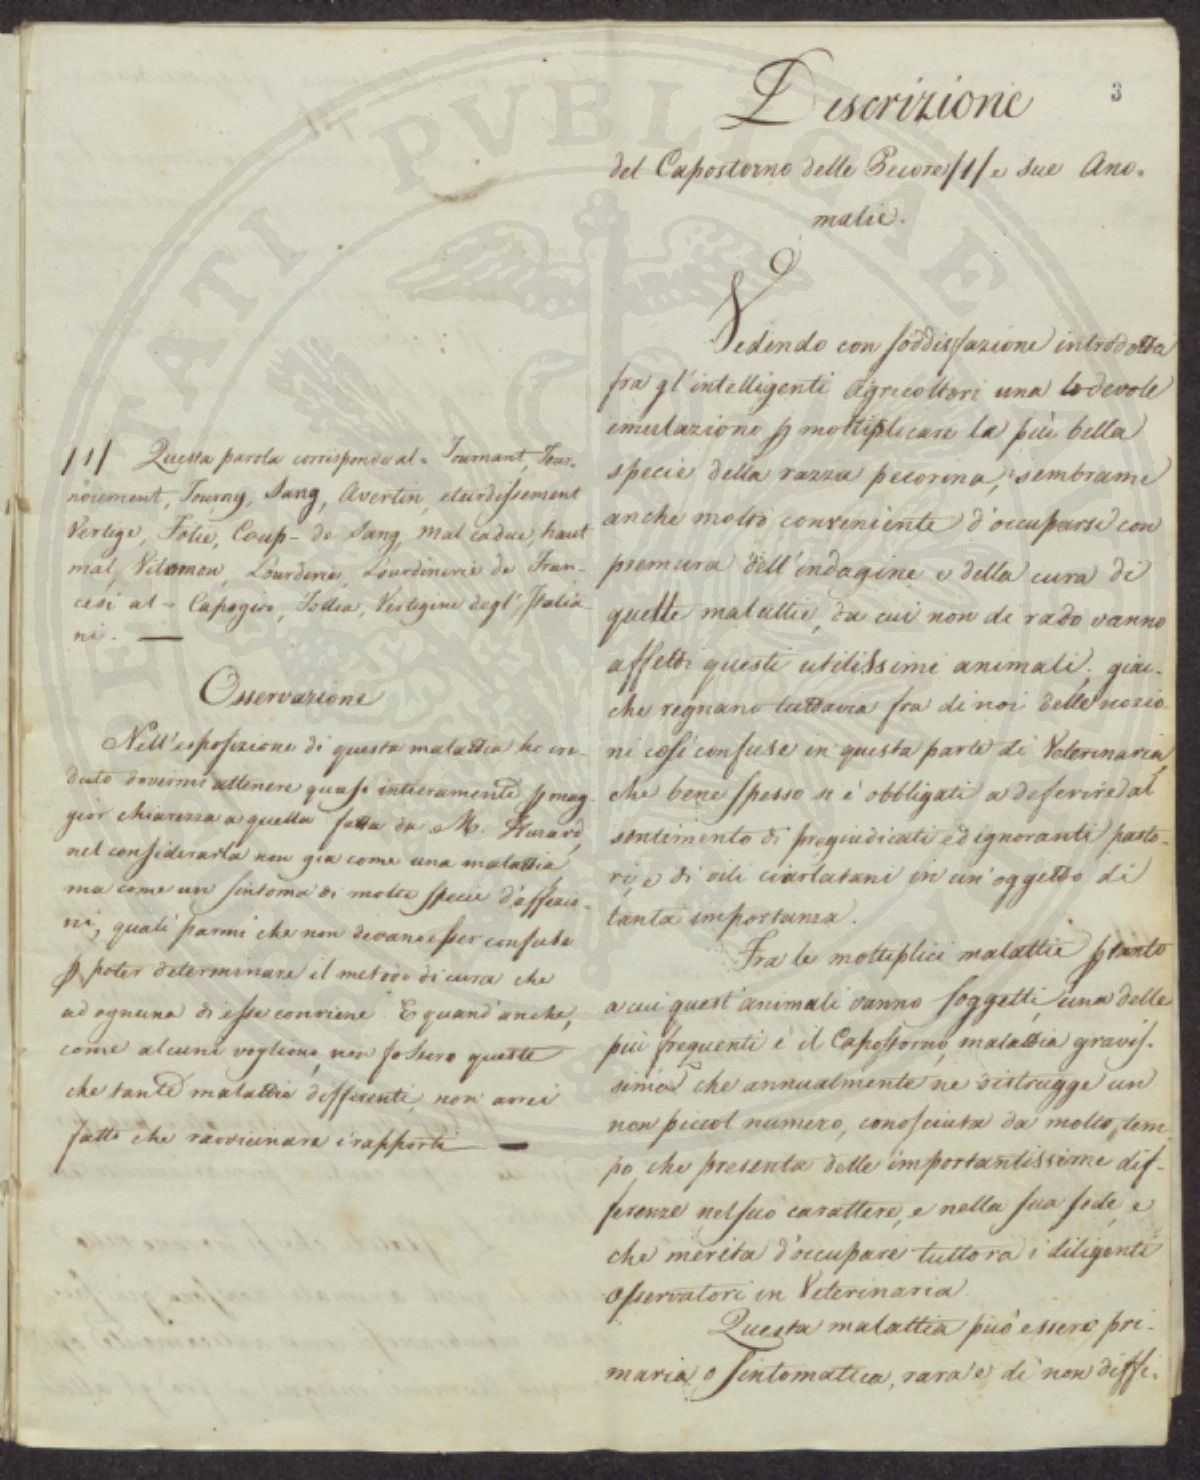 3
Descrizione
del Capostorno delle Pecore /1/ e sue Ano=
malie.
Vedendo con soddisfazione introdotta
fra gl'intelligenti Agricoltori una lodevole
emulazione p moltiplicare la più bella
specie della razza pecorina, sembrame
anche molto conveniente d'occuparsi con
premura dell'indagine e della cura di
quelle malattie, da cui non di rado vanno
affetti questi utilissimi animali; giac-
che regnano tuttavia fra di noi delle nozio
ni così confuse in questa parte di Veterinaria,
che bene spesso si è obbligati a deferire al
sentimento di pregiudicati ed ignoranti pasto-
ri, e di vili ciarlatani in un'oggetto di
tanta importanza.
Fra le moltiplici malattie p tanto
a cui quest'animali vanno soggetti, una delle
più frequenti è il Capostorno, malattia gravis-
sima che annualmente ne distrugge un
non piccol numero, conosciuta da molto tem-
po, che presenta delle importantissime dif-
ferenze nel suo carattere, e nella sua sede, e
che merita d'occupare tuttora i diligenti
Osservatori in Veterinaria.
Questa malattia può essere pri-
maria, o sintomatica, rara è di non diffi-
/1/ Questa parola corrisponde al = Tournant, Tour-
noiement, Tourny, Sang, Avertin, eturdissement
Vertige, Folie, Coup- de Sang, mal caduc, haut
mal, Vilamon, Lourderie, Lourdinerie de Fran-
cesi al = Capogiro, Follia, Vertigine degl'Italia
ni. —
Osservazione
Nell'esposizione di questa malattia ho cre-
duto dovermi attenere quasi intieramente p mag
gior chiarezza a quella fatta da M. Huzard,
nel considerarla non già come una malattia
ma come un sintoma di molte specie d'affezio-
ni, quali parmi che non devano esser confuse
p poter determinare il metodo di cura che
ad ognuna di esse conviene. E quand'anche,
come alcuni vogliono, non fossero queste
che tante malattie differenti, non avrei
fatto che ravvicinare i rapporti —